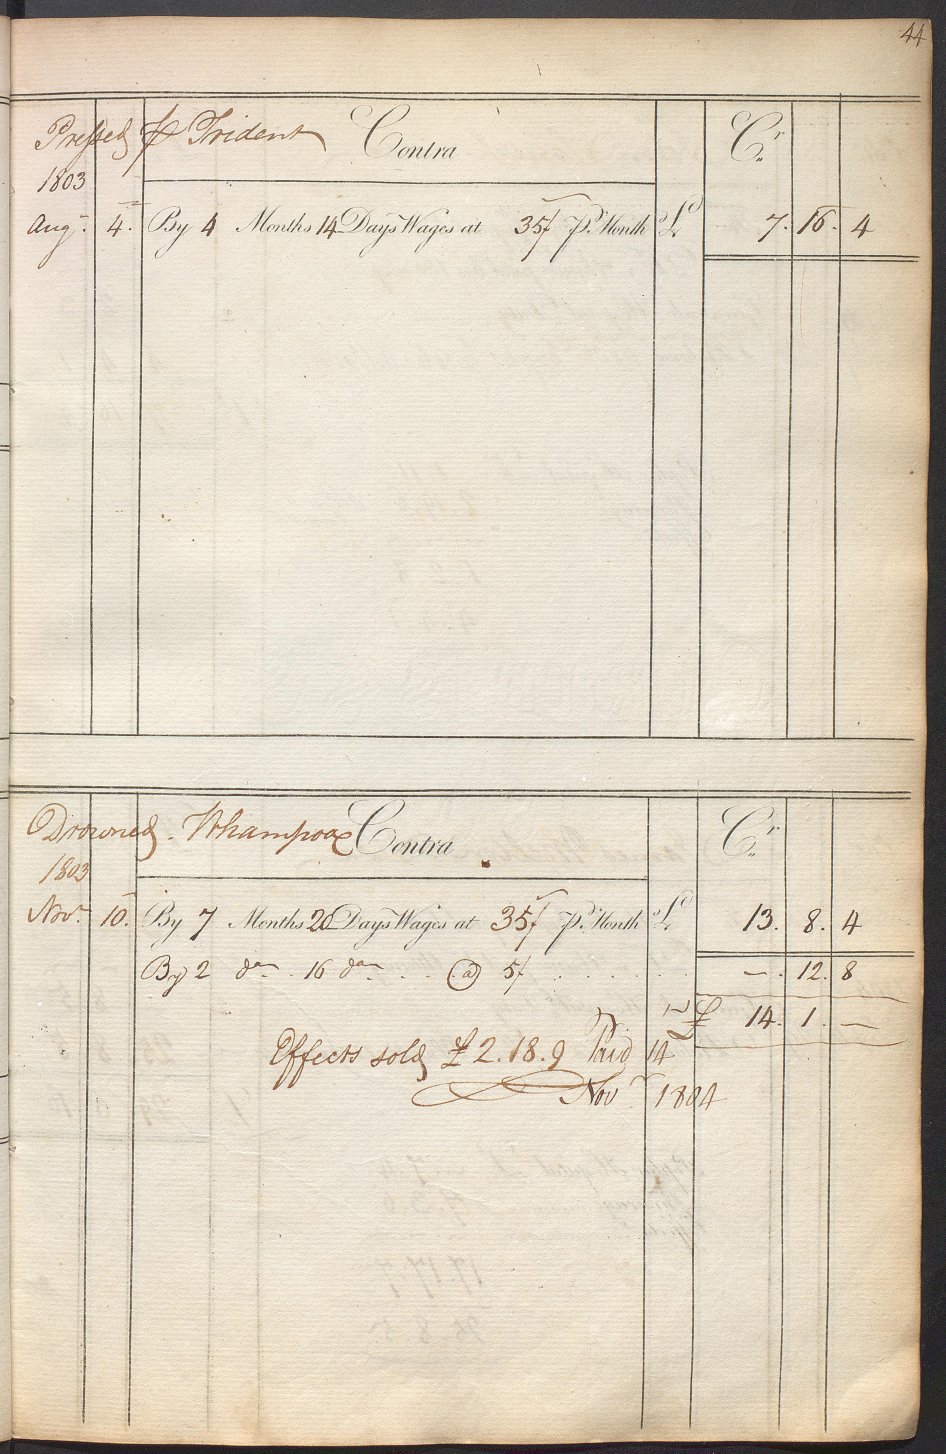 44
Pressed p Trident Contra Cr.
1803
Augt. 4. By 4 Months 14 Days Wages at 35/ P. Month £ 7. 16. 4
Drowned. Whampoa Contra Cr.
1803
Novr. 10. By 7 Months 20 Days Wages at 35/ P. Month £ 13. 8. 4
By 2 do. 16 do. @ 5/ — . 12. 8
£ 14. 1. —
Effects sold £ 2. 18. 9 Paid 14
Novr. 1804